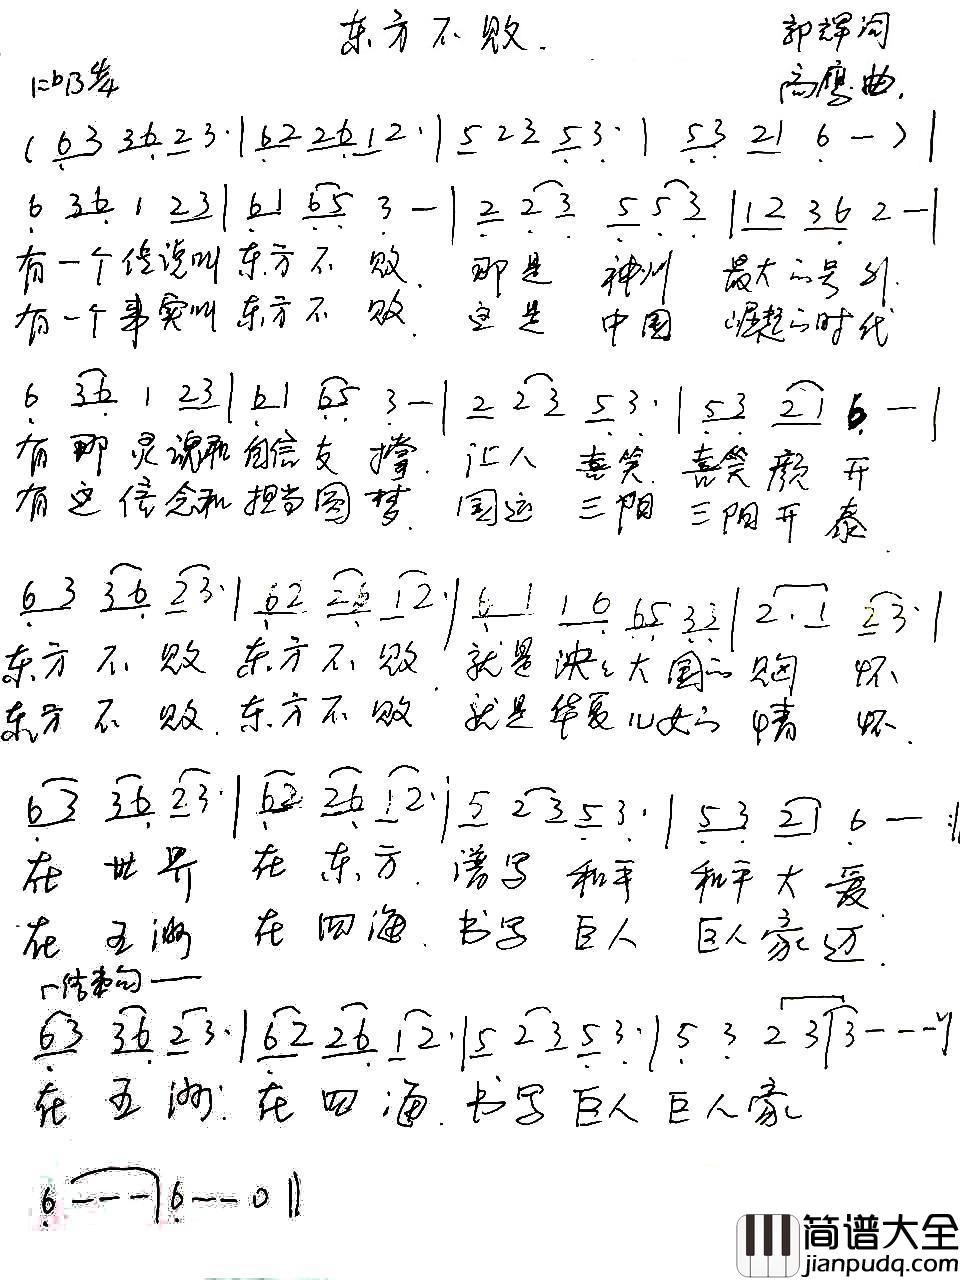 东方不败.
郭辉词
1=bB 4/4
高鹰曲.
( 6 3 3 6 2 3 · | 6 2 2 6 1 2 · | 5 2 3 5 3 · | 5 3 2 1 6 — ) |
6 3 6 1 2 3 | 6 1 6 5 3 — | 2 2 3 5 5 3 | 1 2 3 6 2 — |
有一个传说叫东方不败. 那是神州最大的号外.
有一个事实叫东方不败. 这是中国崛起的时代
6 3 6 1 2 3 | 6 1 6 5 3 — | 2 2 3 5 3 · | 5 3 2 1 6 — |
有那灵魂和自信支撑. 让人喜笑. 喜笑颜开
有这信念和担当圆梦. 国运三阳三阳开泰.
6 3 3 6 2 3 · | 6 2 2 6 1 2 · | 6 1 1 6 6 5 3 3 | 2 · 1 2 3 · |
东方不败 东方不败. 就是泱泱大国的胸怀
东方不败. 东方不败 就是华夏儿女的情怀.
6 3 3 6 2 3 · | 6 2 2 6 1 2 · | 5 2 3 5 3 · | 5 3 2 1 6 — :||
在世界在东方. 谱写和平和平大爱
在五洲在四海. 书写巨人巨人豪迈.
结束句——
6 3 3 6 2 3 · | 6 2 2 6 1 2 · | 5 2 3 5 3 · | 5 3 2 3 | 3 - - - |
在五洲. 在四海. 书写巨人巨人豪
6 - - - | 6 - - 0 ||
简谱大全
www.jianpudq.com